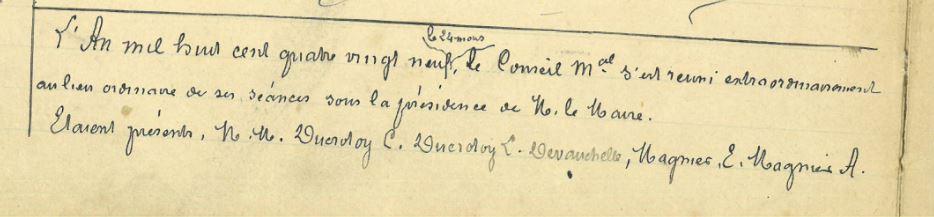 le 24 mars
L'An mil huit cent quatre vingt neuf, le Conseil Mal s'est reuni extraordinairement
au lieu ordinaire de ses séances sous la présidence de M. le Maire.
Etaient présents, M. M. Ducrotoy C. Ducrotoy L. Devauchelle, Magnier, E. Magnier A.